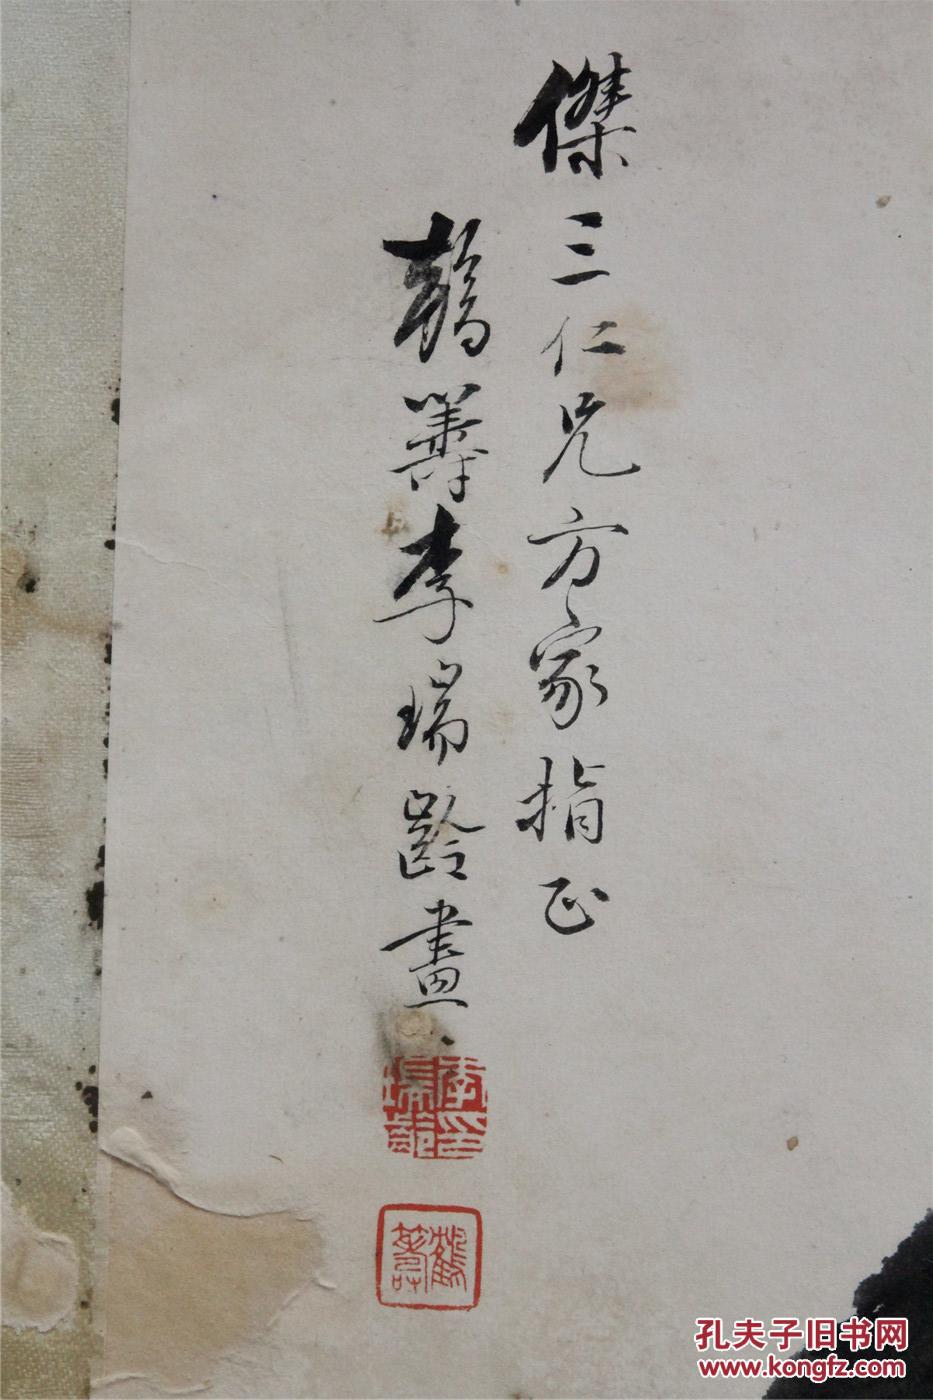 傑三仁兄方家指正
鶴籌李瑞齡畫
李瑞齡印
鶴籌
孔夫子旧书网
www.kongfz.com